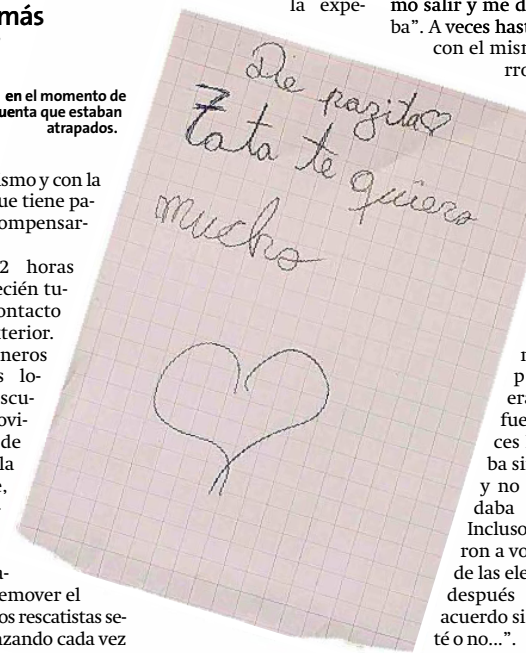 más
en el momento de
uenta que estaban
atrapados.
smo y con la
ue tiene pa-
ompensar-
2 horas
ecién tu-
ontacto
terior.
neros
s lo-
scu-
ovi-
de
la
e,
emover el
os rescatistas se-
zando cada vez
De pazita♡
Tata te quiero
mucho
la expe-
mo salir y me d
ba". A veces hast
con el mism
rro
era
fue
ces
ba si
y no
daba
Incluso
ron a vo
de las ele
después
acuerdo si
té o no...".